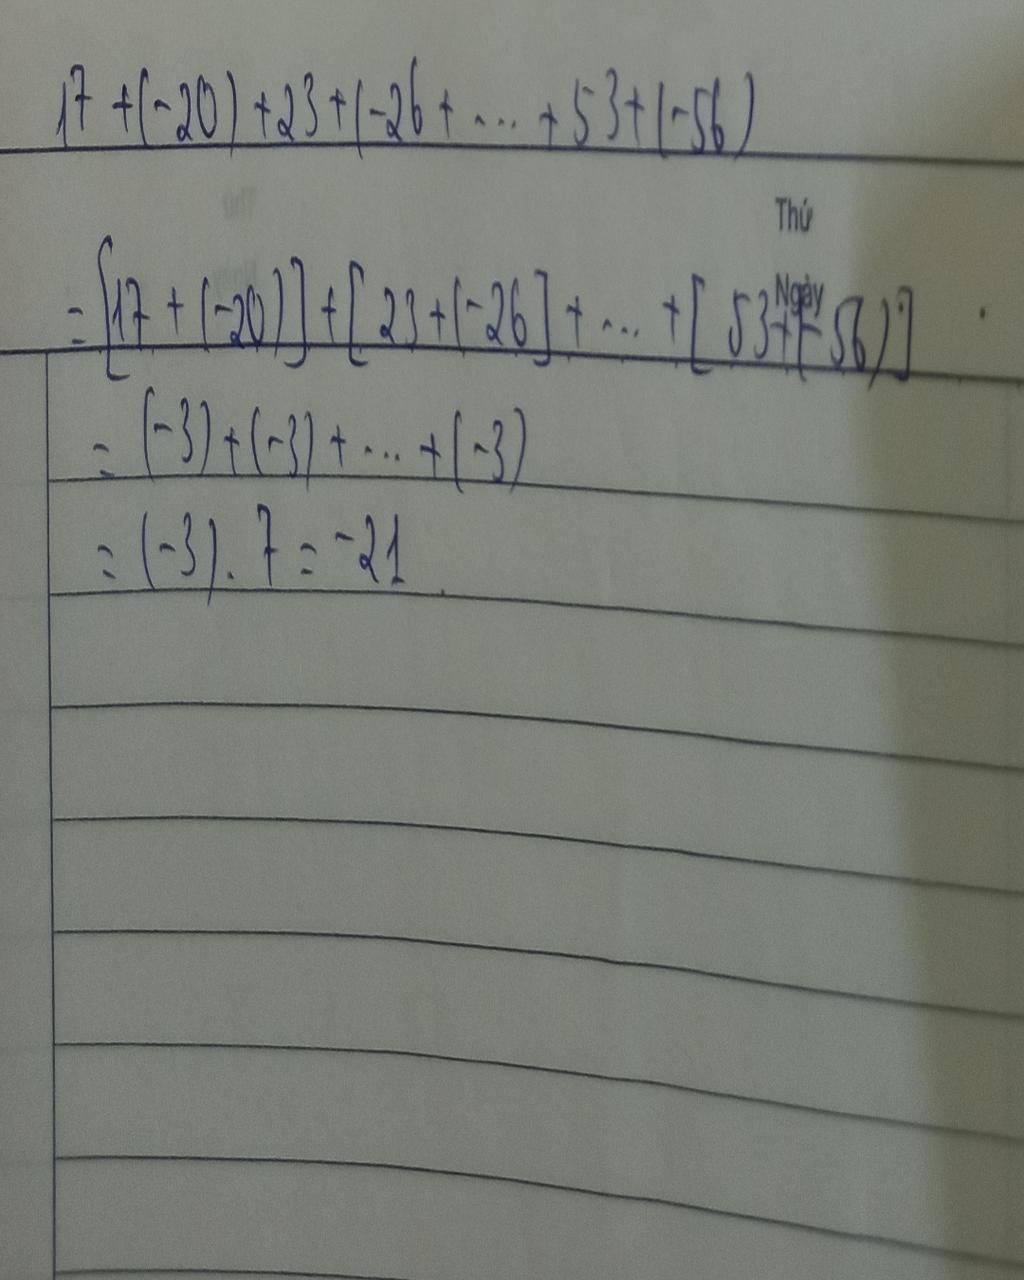 17 + (-20) + 23 + (-26 + ... + 53 + (-56)
Thứ
Ngày
= [17 + (-20)] + [23 + (-26] + ... + [53 + (-56)]
= (-3) + (-3) + ... + (-3)
= (-3) . 7 = -21